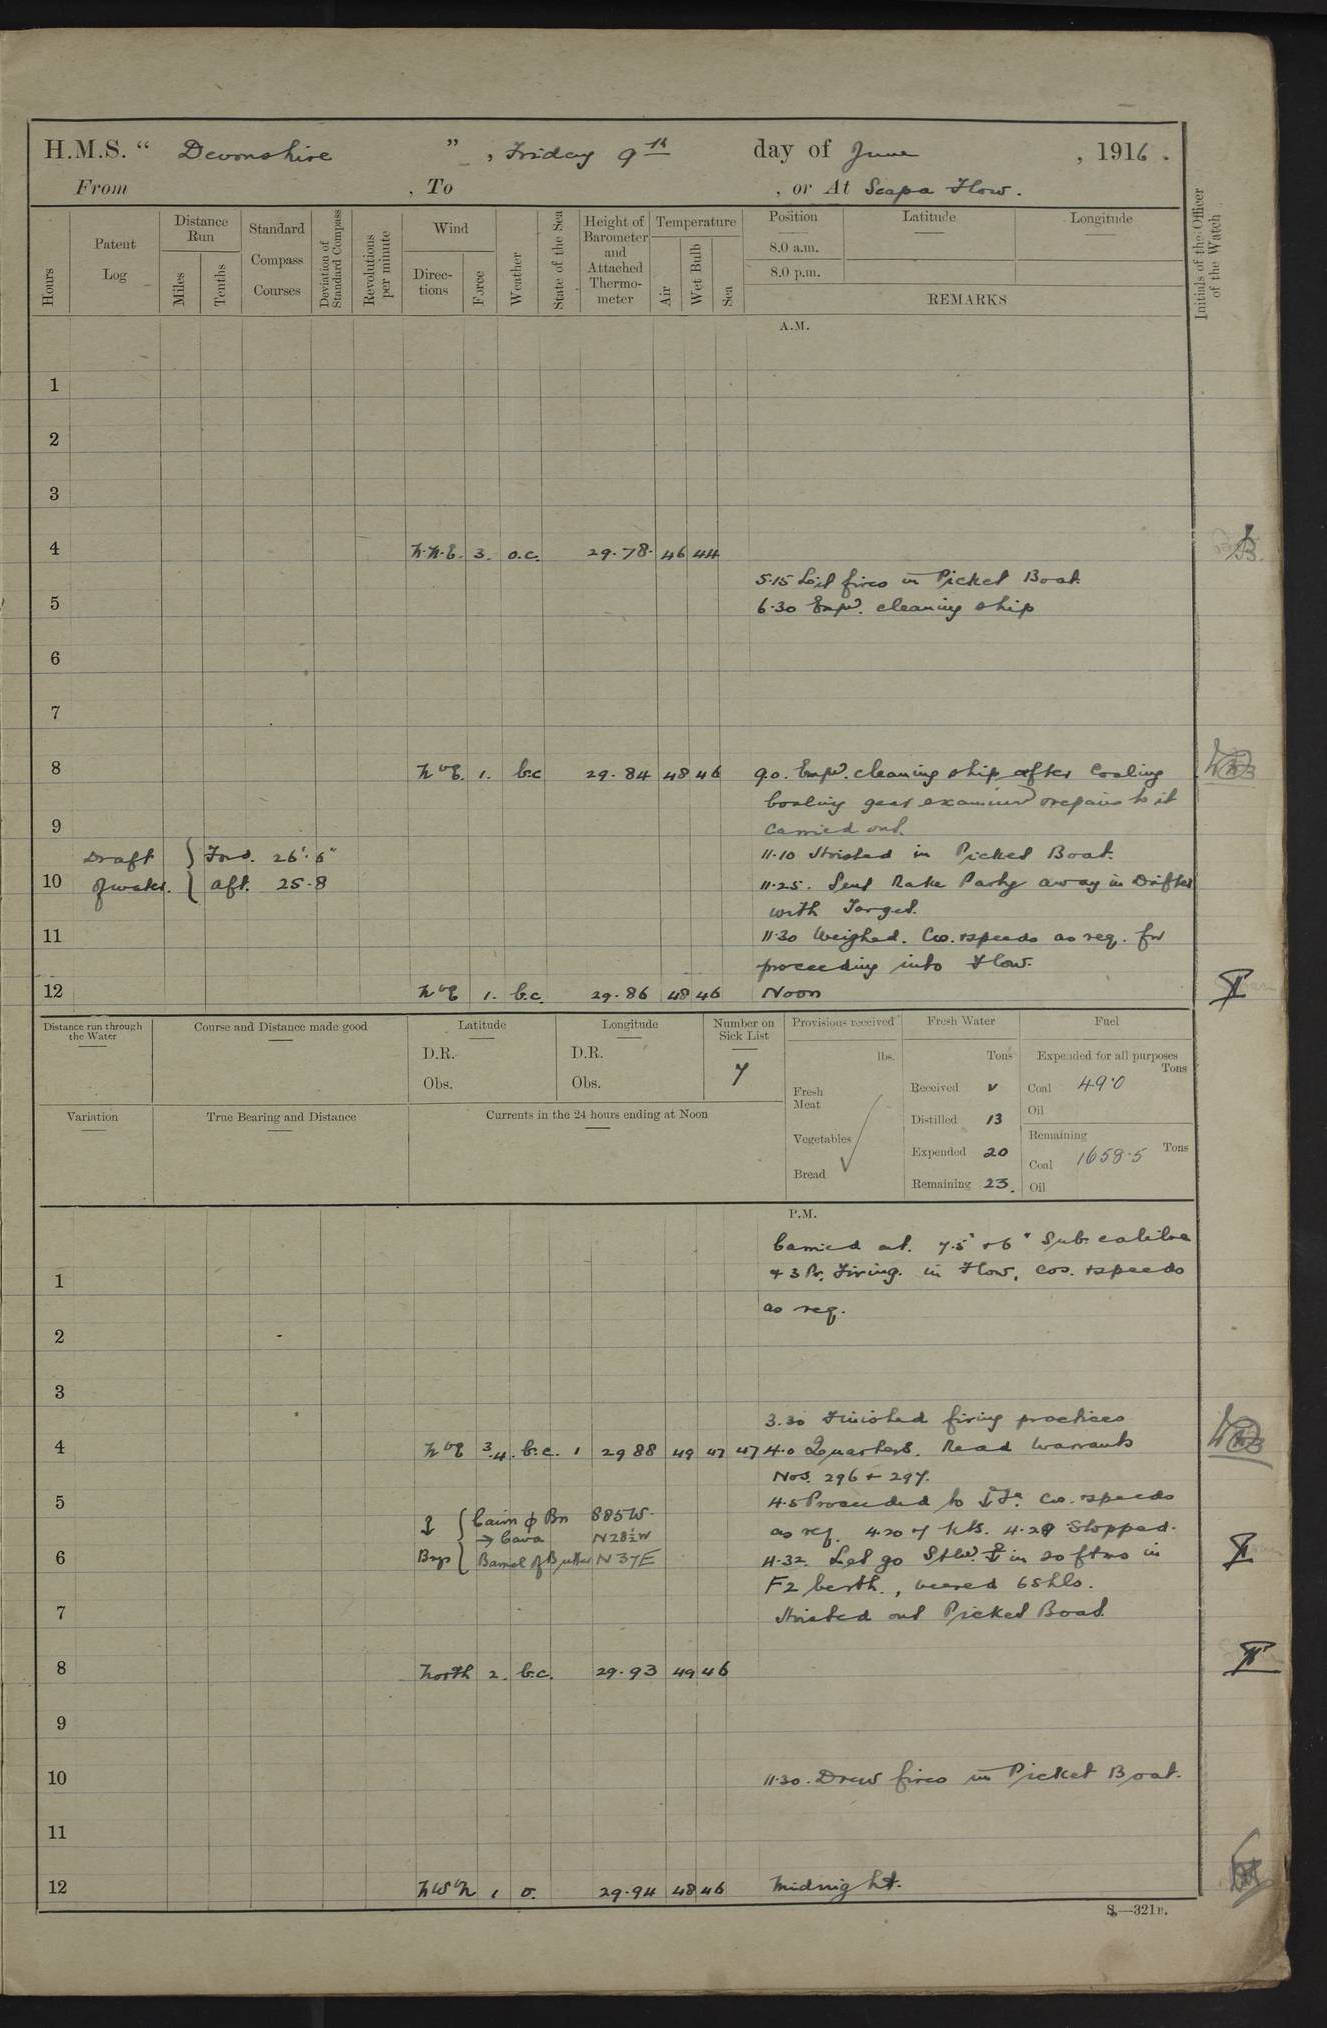 H.M.S. “ Devonshire ” , Friday 9th day of June , 1916 .
From , To , or At Scapa Flow.
Hours
Patent Log
Distance Run
Miles
Tenths
Standard Compass Courses
Deviation of Standard Compass
Revolutions per minute
Wind
Direc- tions
Force
Weather
State of the Sea
Height of Barometer and Attached Thermo- meter
Temperature
Air
Wet Bulb
Sea
Position
Latitude
Longitude
8.0 a.m.
8.0 p.m.
REMARKS
Initials of the Officer of the Watch
A.M.
1
2
3
4 N.N.E. 3. o.c. 29.78. 46 44
5.15 Lit fires in Picket Boat
5 6.30 Empd. cleaning ship
6
7
8 N by E. 1. b.c 29.84 48 46 9.0. Empd. cleaning ship after Coaling
Coaling gear examined & repairs to it
9 carried out.
Draft of water. { Ford. 26'. 6" 11.10 Hoisted in Picket Boat.
10 aft. 25.8 11.25. Sent Rake Party away in Drifter
with Target.
11 11.30 Weighed. Co. & speeds as req. for
proceeding into Flow.
12 N by E 1. b.c. 29.86 48 46 Noon
Distance run through the Water
Course and Distance made good
Latitude
D.R.
Obs.
Longitude
D.R.
Obs.
Number on Sick List
7
Provisions received
lbs.
Fresh Meat
Vegetables
Bread
Fresh Water
Tons
Received
Distilled 13
Expended 20
Remaining 23.
Fuel
Expended for all purposes
Tons
Coal 49.0
Oil
Remaining
Coal 1658.5 Tons
Oil
Variation
True Bearing and Distance
Currents in the 24 hours ending at Noon
P.M.
Carried out. 7.5" & 6" Sub. calibre
1 & 3 Pr. Firing. in Flow, cos. & speeds
as req.
2
3
3.30 Finished firing practices
4 N by E 3.4. b.c. 1 29 88 49 47 47 4.0 Quarters. Read Warrants
Nos. 296 & 297.
5 4.5 Proceeded to Co. & speeds
Cairn Bn S85W. as req. 4.20 7 kts. 4.28 Stopped.
→ Cava N28½W
6 Brgs Barrel of Butter N37E 4.32. Let go Stbd. in 20 ftms in
F2 berth., veered 6 shls.
7 Hoisted out Picket Boat
8 North 2. b.c. 29.93 49 46
9
10 11.30. Drew fires in Picket Boat.
11
12 NW by N 1 o. 29.94 48 46 Midnight.
S.—321B.